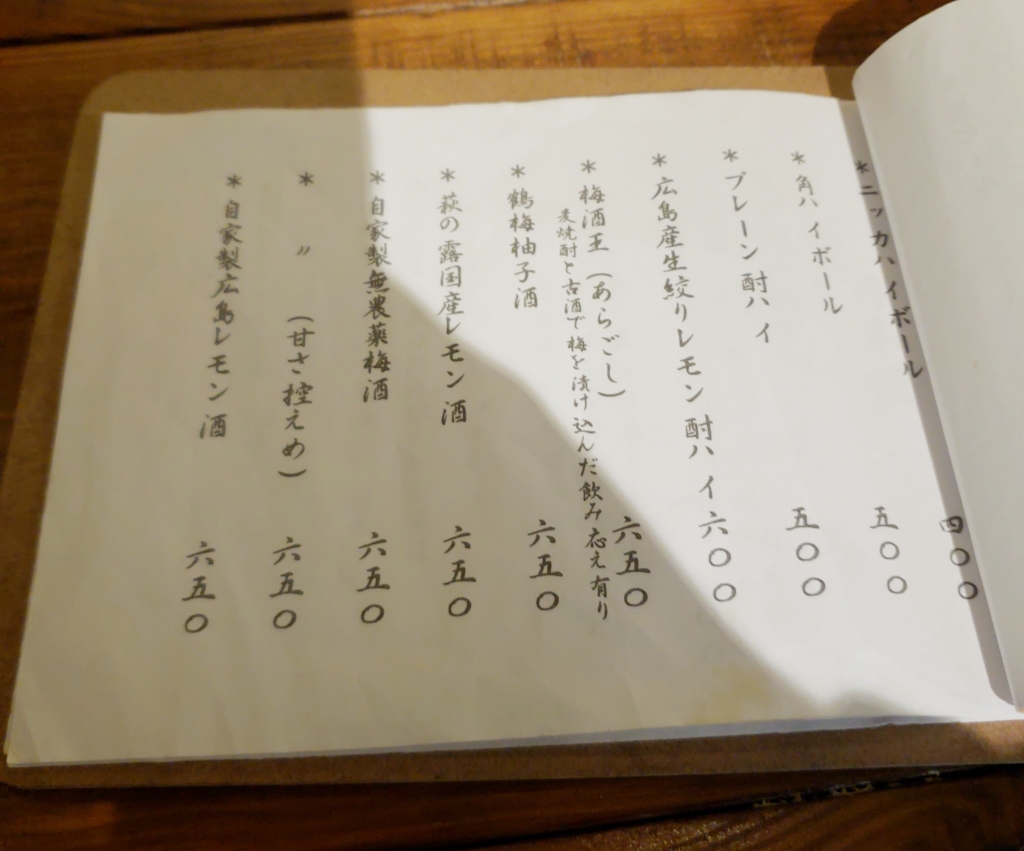 *ニッカハイボール 四〇〇
*角ハイボール 五〇〇
*プレーン酎ハイ 五〇〇
*広島産生絞りレモン酎ハイ 六〇〇
*梅酒王（あらごし） 六五〇
麦焼酎と古酒で梅を漬け込んだ飲み応え有り
*鶴梅柚子酒 六五〇
*萩の露国産レモン酒 六五〇
*自家製無農薬梅酒 六五〇
* 〃 （甘さ控えめ） 六五〇
*自家製広島レモン酒 六五〇